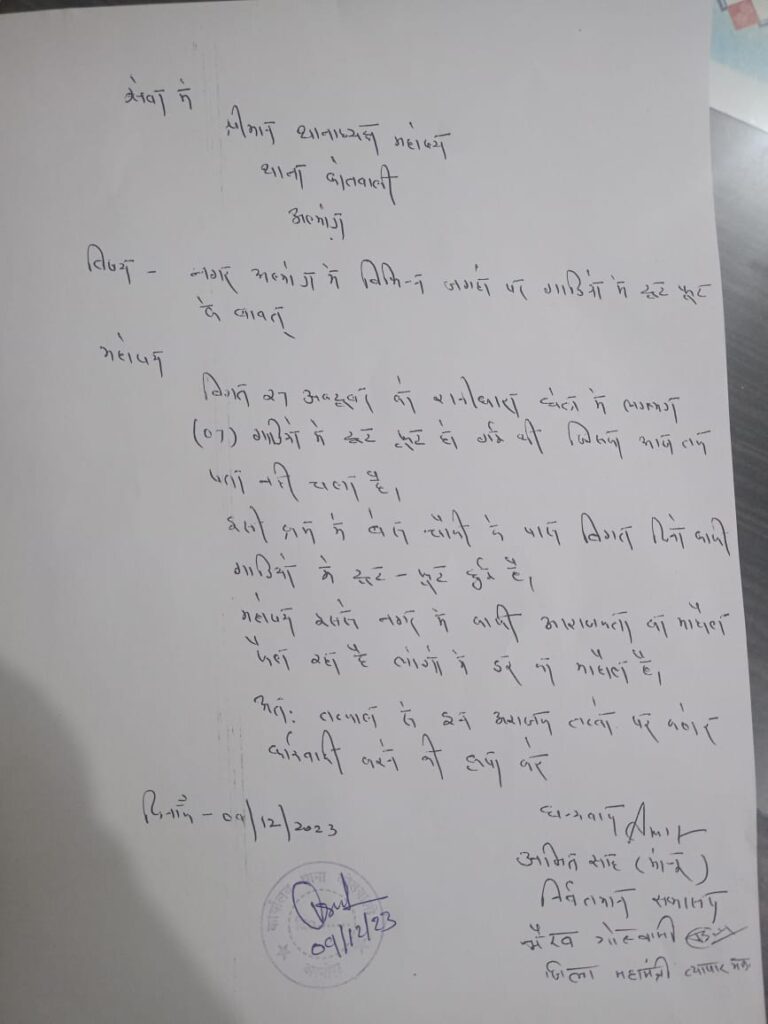 सेवा में
श्रीमान थानाध्यक्ष महोदय
थाना कोतवाली
अल्मोड़ा
विषय - नगर अल्मोड़ा में विभिन्न जगहों पर गाडियों में टूट फूट
के बावत्
महोदय
विगत 27 अक्टूबर को रानीधारा क्षेत्र में लगभग
(07) गाडियों में टूट फूट हो गई थी जिसका आज तक
पता नही चला है।
इसी क्रम में बेस चौकी के पास विगत दिनों काफी
गाडियों में टूट-फूट हुई है।
महोदय इससे नगर में काफी अराजकता का माहौल
फैला रहा है लोगों में डर का माहौल है।
अतः तत्काल से इन अराजक तत्वों पर कठोर
कार्यवाही करने की कृपा करें
दिनाँक - 09/12/2023
धन्यवाद Amit
अमित साह (मोनू)
निर्वतमान सभासद
भैरव गोस्वामी
जिला महामंत्री व्यापार मंडल
09/12/23
कार्यालय थाना कोतवाली